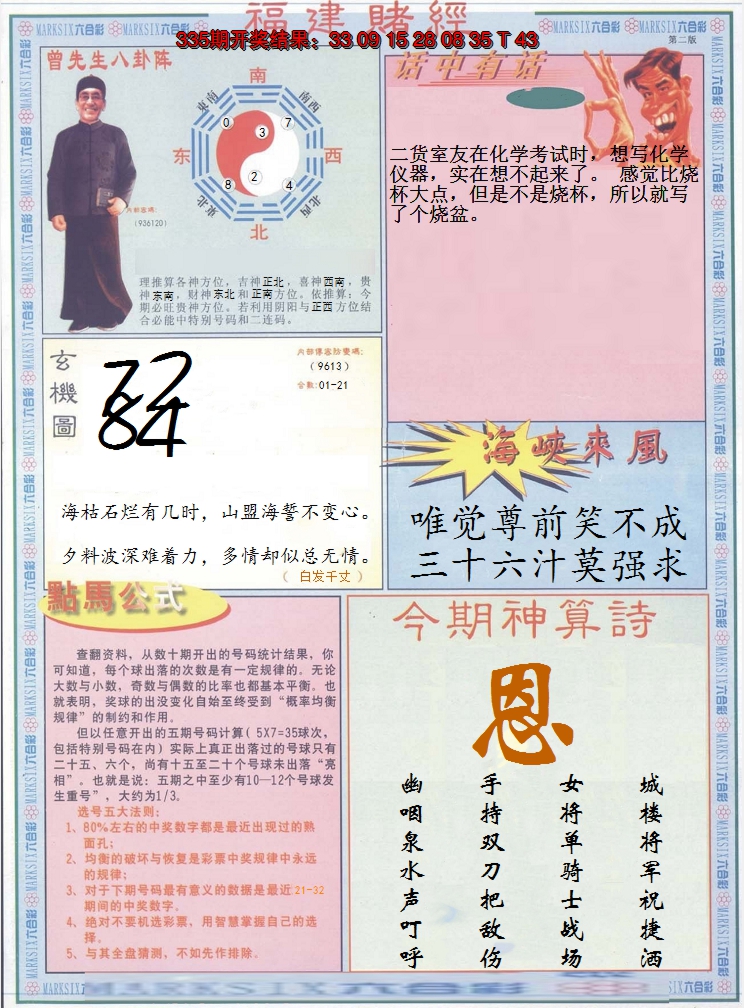 福建賭經
335期开奖结果：33 09 15 28 08 35 T 43
第二版
MARKSIX六合彩
曾先生八卦阵
南
東南
南西
0
3
7
东
西
8
2
4
東北
北西
北
內部密碼:
（936120）
理推算各神方位，吉神正北，喜神西南，贵
神东南，财神东北和正南方位。依推算：今
期必旺贵神方位。若利用阴阳与正西方位结
合必能中特别号码和二连码。
话中有话
二货室友在化学考试时，想写化学
仪器，实在想不起来了。 感觉比烧
杯大点，但是不是烧杯，所以就写
了个烧盆。
玄
機
圖
內部傳器防變碼:
（9613）
合數:01-21
海枯石烂有几时，山盟海誓不变心。
夕料波深难着力，多情却似总无情。
（ 白发千丈 ）
海峽來風
唯觉尊前笑不成
三十六汁莫强求
點馬公式
查翻资料，从数十期开出的号码统计结果，你
可知道，每个球出落的次数是有一定规律的。无论
大数与小数，奇数与偶数的比率也都基本平衡。也
就表明，奖球的出没变化自始至终受到“概率均衡
规律”的制约和作用。
但以任意开出的五期号码计算( 5X7=35球次，
包括特别号码在内) 实际上真正出落过的号球只有
二十五、六个，尚有十五至二十个号球未出落“亮
相”。也就是说：五期之中至少有10—12个号球发
生重号”，大约为1/3。
选号五大法则:
1、80%左右的中奖数字都是最近出现过的熟
面孔;
2、均衡的破坏与恢复是彩票中奖规律中永远
的规律;
3、对于下期号码最有意义的数据是最近21-32
期间的中奖数字。
4、绝对不要机选彩票，用智慧掌握自己的选
择。
5、与其全盘猜测，不如先作排除。
今期神算詩
恩
幽咽泉水声叮呼
手持双刀把敌伤
女将单骑士战场
城楼将军祝捷洒
MARKSIX六合彩